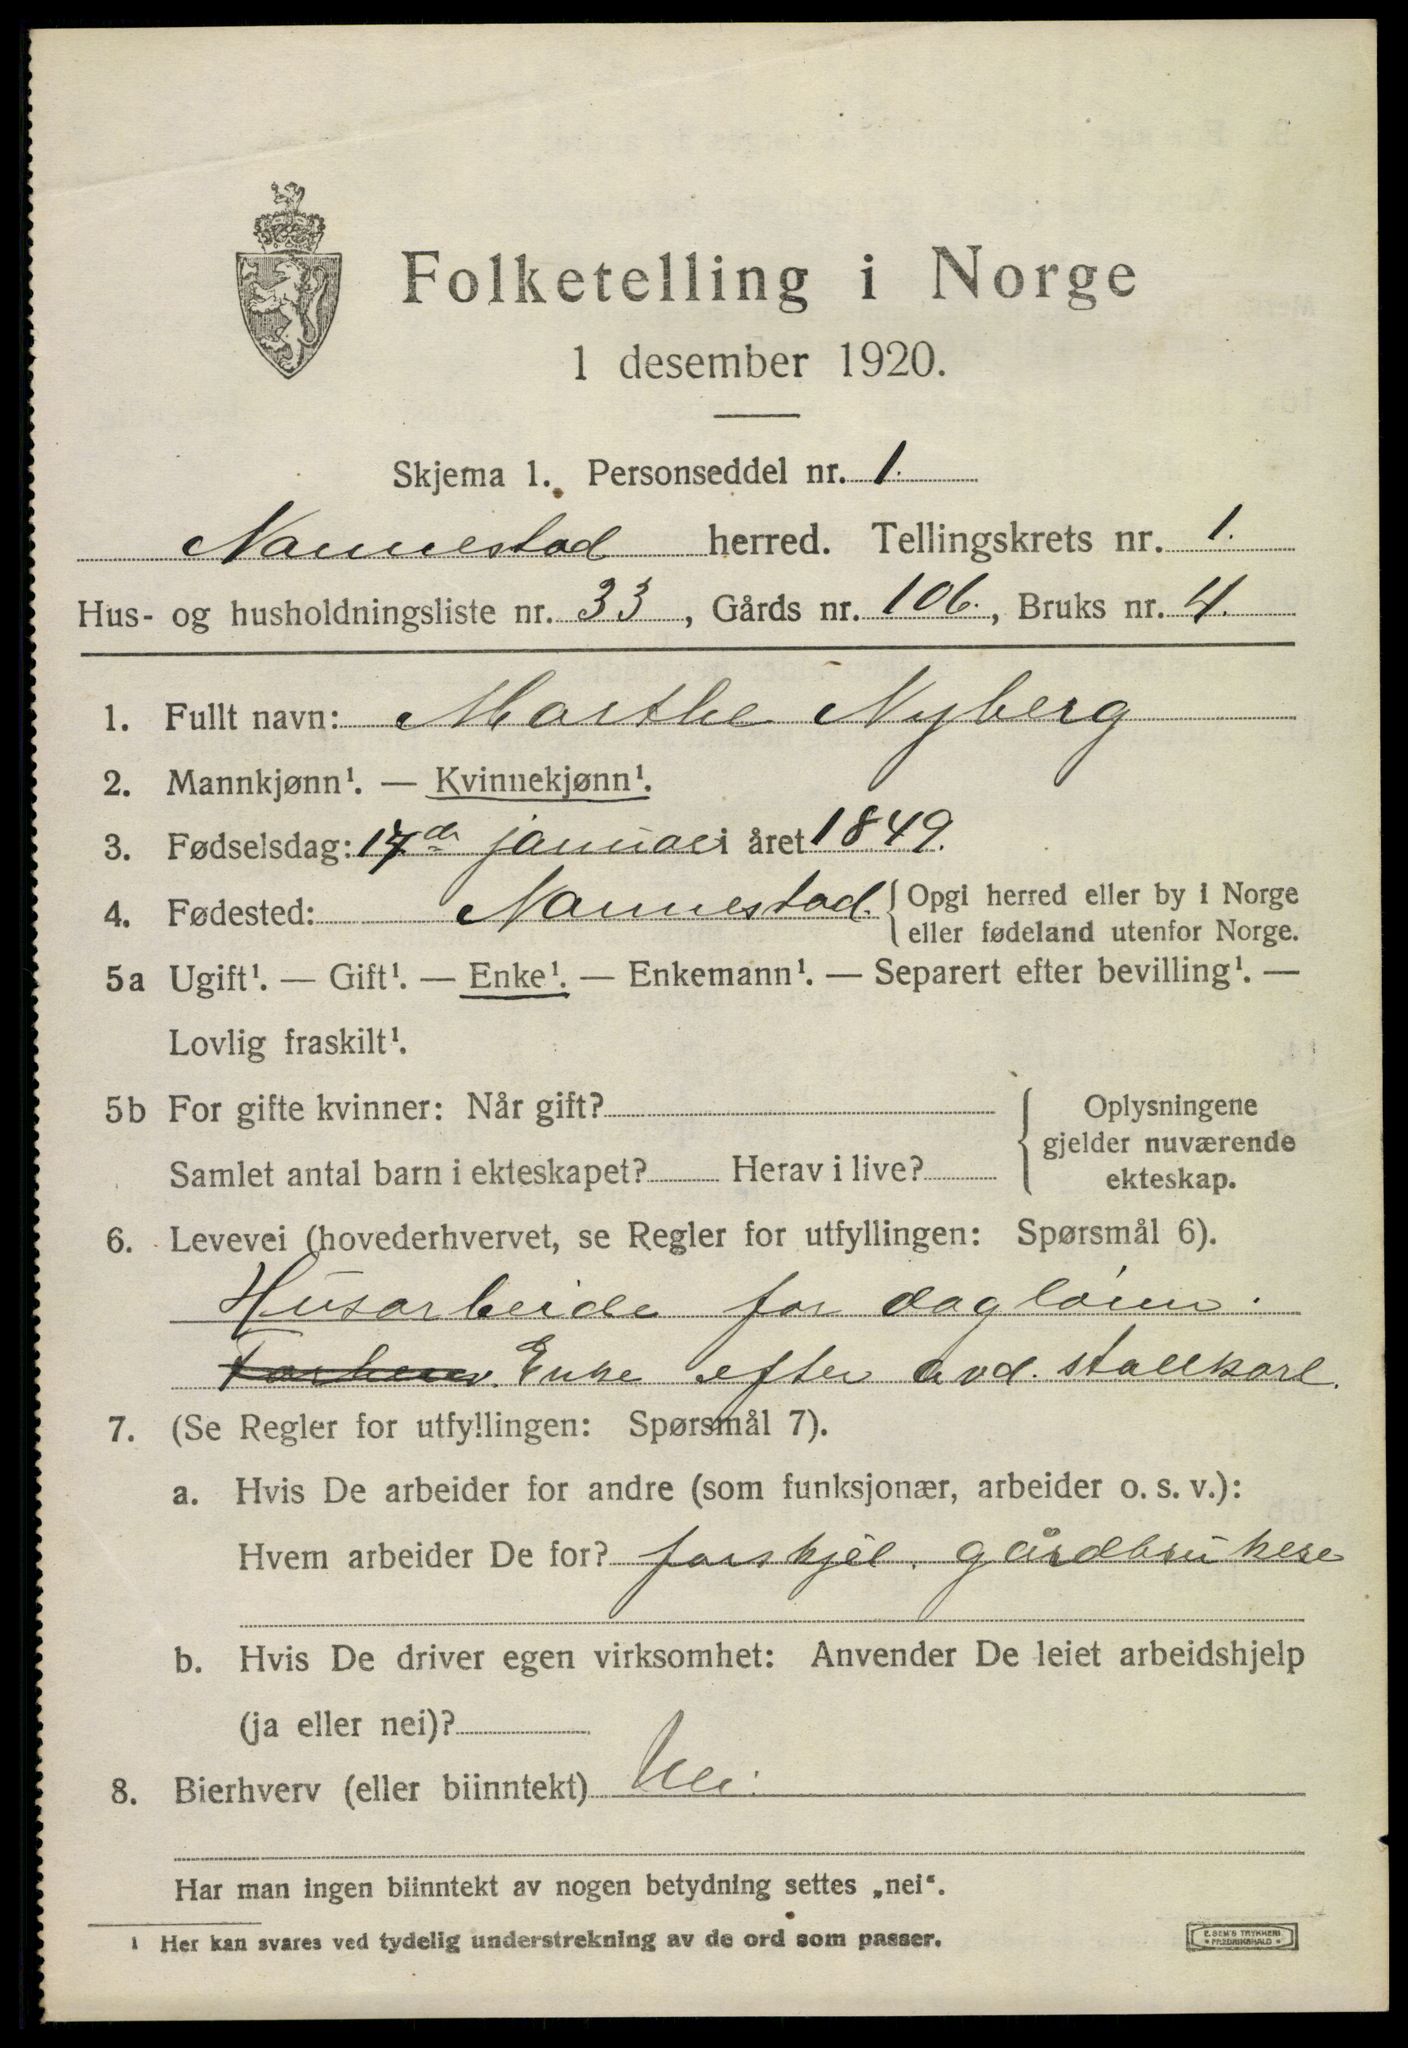 Folketelling i Norge
1 desember 1920.
Skjema 1. Personseddel nr. 1.
Nannestad herred. Tellingskrets nr. 1.
Hus- og husholdningsliste nr. 33, Gårds nr. 106., Bruks nr. 4.
1. Fullt navn: Marthe Nyberg
2. Mannkjønn¹. — Kvinnekjønn¹.
3. Fødselsdag: 17de januar i året 1849.
4. Fødested: Nannestad. { Opgi herred eller by i Norge
eller fødeland utenfor Norge.
5a Ugift¹. — Gift¹. — Enke¹. — Enkemann¹. — Separert efter bevilling¹. —
Lovlig fraskilt¹.
5b For gifte kvinner: Når gift? { Oplysningene
gjelder nuværende
Samlet antal barn i ekteskapet? Herav i live? ekteskap.
6. Levevei (hovederhvervet, se Regler for utfyllingen: Spørsmål 6).
Husarbeide for dagløn.
Enke efter avd. stallkarl.
7. (Se Regler for utfyllingen: Spørsmål 7).
a. Hvis De arbeider for andre (som funksjonær, arbeider o. s. v.):
Hvem arbeider De for? forskjel. gårdbrukere
b. Hvis De driver egen virksomhet: Anvender De leiet arbeidshjelp
(ja eller nei)?
8. Bierhverv (eller biinntekt) Nei.
Har man ingen biinntekt av nogen betydning settes „nei“.
¹ Her kan svares ved tydelig understrekning av de ord som passer.
E. SEM'S TRYKKERI
FREDRIKSHALD